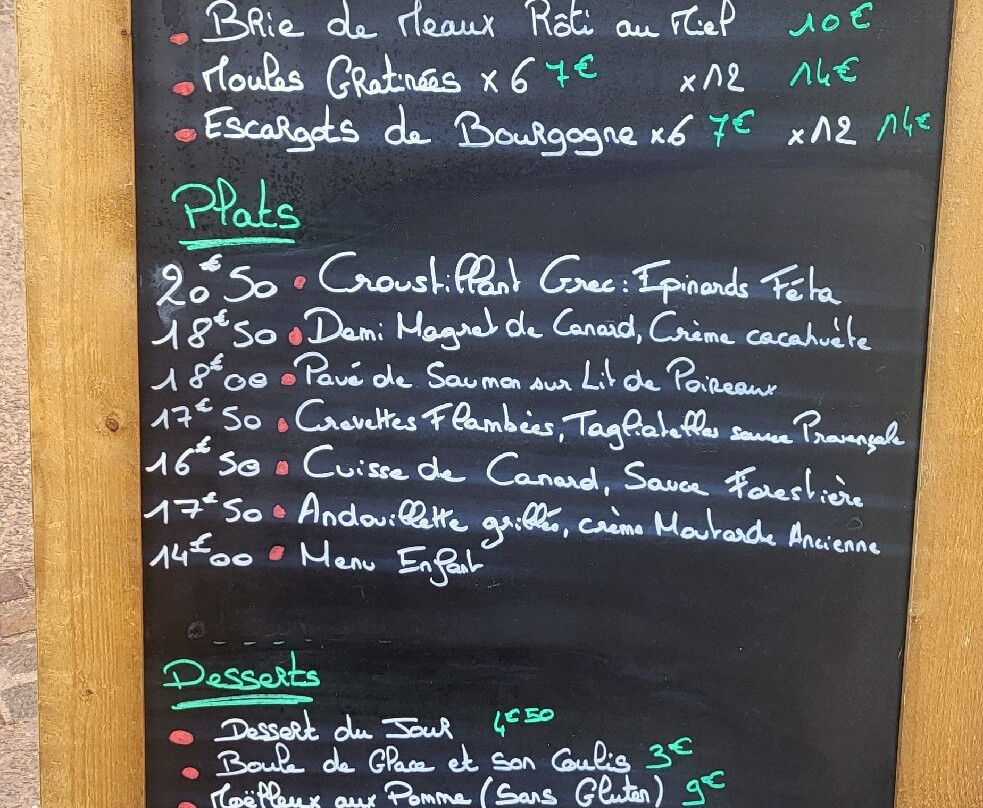 Brie de Meaux Rôti au Miel 10€
Moules Gratinées x 6 7€ x12 14€
Escargots de Bourgogne x6 7€ x12 14€
Plats
20€50 • Croustillant Grec : Epinards Féta
18€50 • Demi Magret de Canard, Crème cacahuète
18€00 • Pavé de Saumon sur Lit de Poireaux
17€50 • Crevettes Flambées, Tagliatelles sauce Provençale
16€50 • Cuisse de Canard, Sauce Forestière
17€50 • Andouillette grillée, crème Moutarde Ancienne
14€00 • Menu Enfant
Desserts
Dessert du Jour 4€50
Boule de Glace et son Coulis 3€
Moëlleux aux Pomme (Sans Gluten) 9€